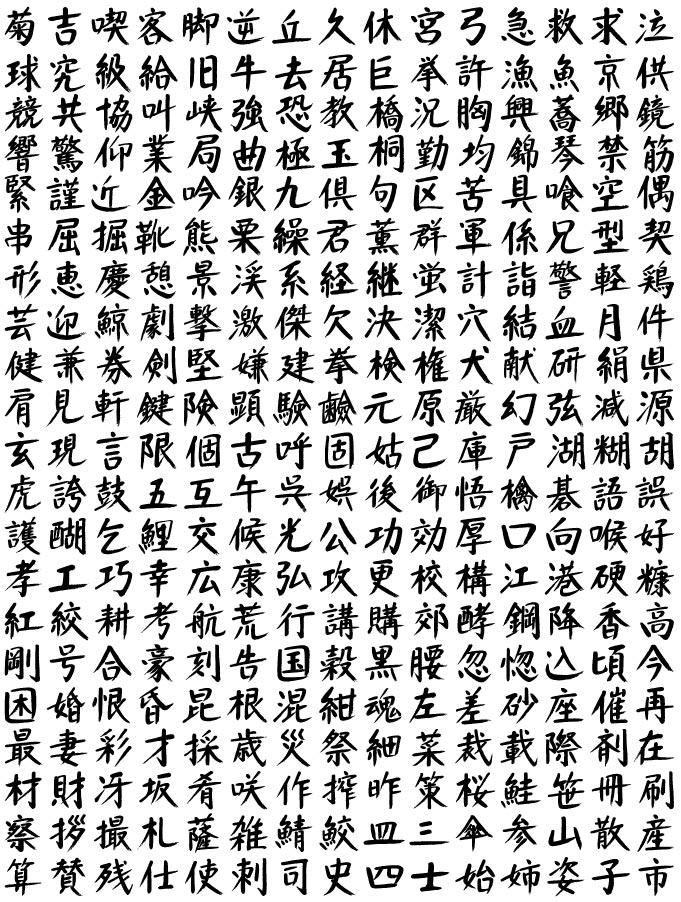 菊吉喫客脚逆丘久休宮弓急救求泣
球究級給旧牛去居巨挙許漁魚京供
競共協叫峡強恐教橋況胸興蕎郷鏡
響驚仰業局曲極玉桐勤均錦琴禁筋
緊謹近金吟銀九倶句区苦具喰空偶
串屈掘靴熊栗繰君薫群軍係兄型契
形恵慶憩景渓系経継蛍計詣警軽鶏
芸迎鯨劇撃激傑欠決潔穴結血月件
健兼券剣堅嫌建拳検権犬献研絹県
肩見軒鍵険顕験鹸元原厳幻弦減源
玄現言限個古呼固姑己庫戸湖糊胡
虎誇鼓五互午呉娯後御悟檎碁語誤
護醐乞鯉交候光公功効厚口向喉好
孝工巧幸広康弘攻更校構江港硬糠
紅絞耕考航荒行講購郊酵鋼降香高
剛号合豪刻告国穀黒腰忽惚込頃今
困婚恨昏昆根混紺魂左差砂座催再
最妻彩才採歳災祭細菜裁載際剤在
材財冴坂肴咲作搾昨策桜鮭笹冊刷
察拶撮札薩雑鯖鮫皿三傘参山散産
算賛残仕使刺司史四士始姉姿子市